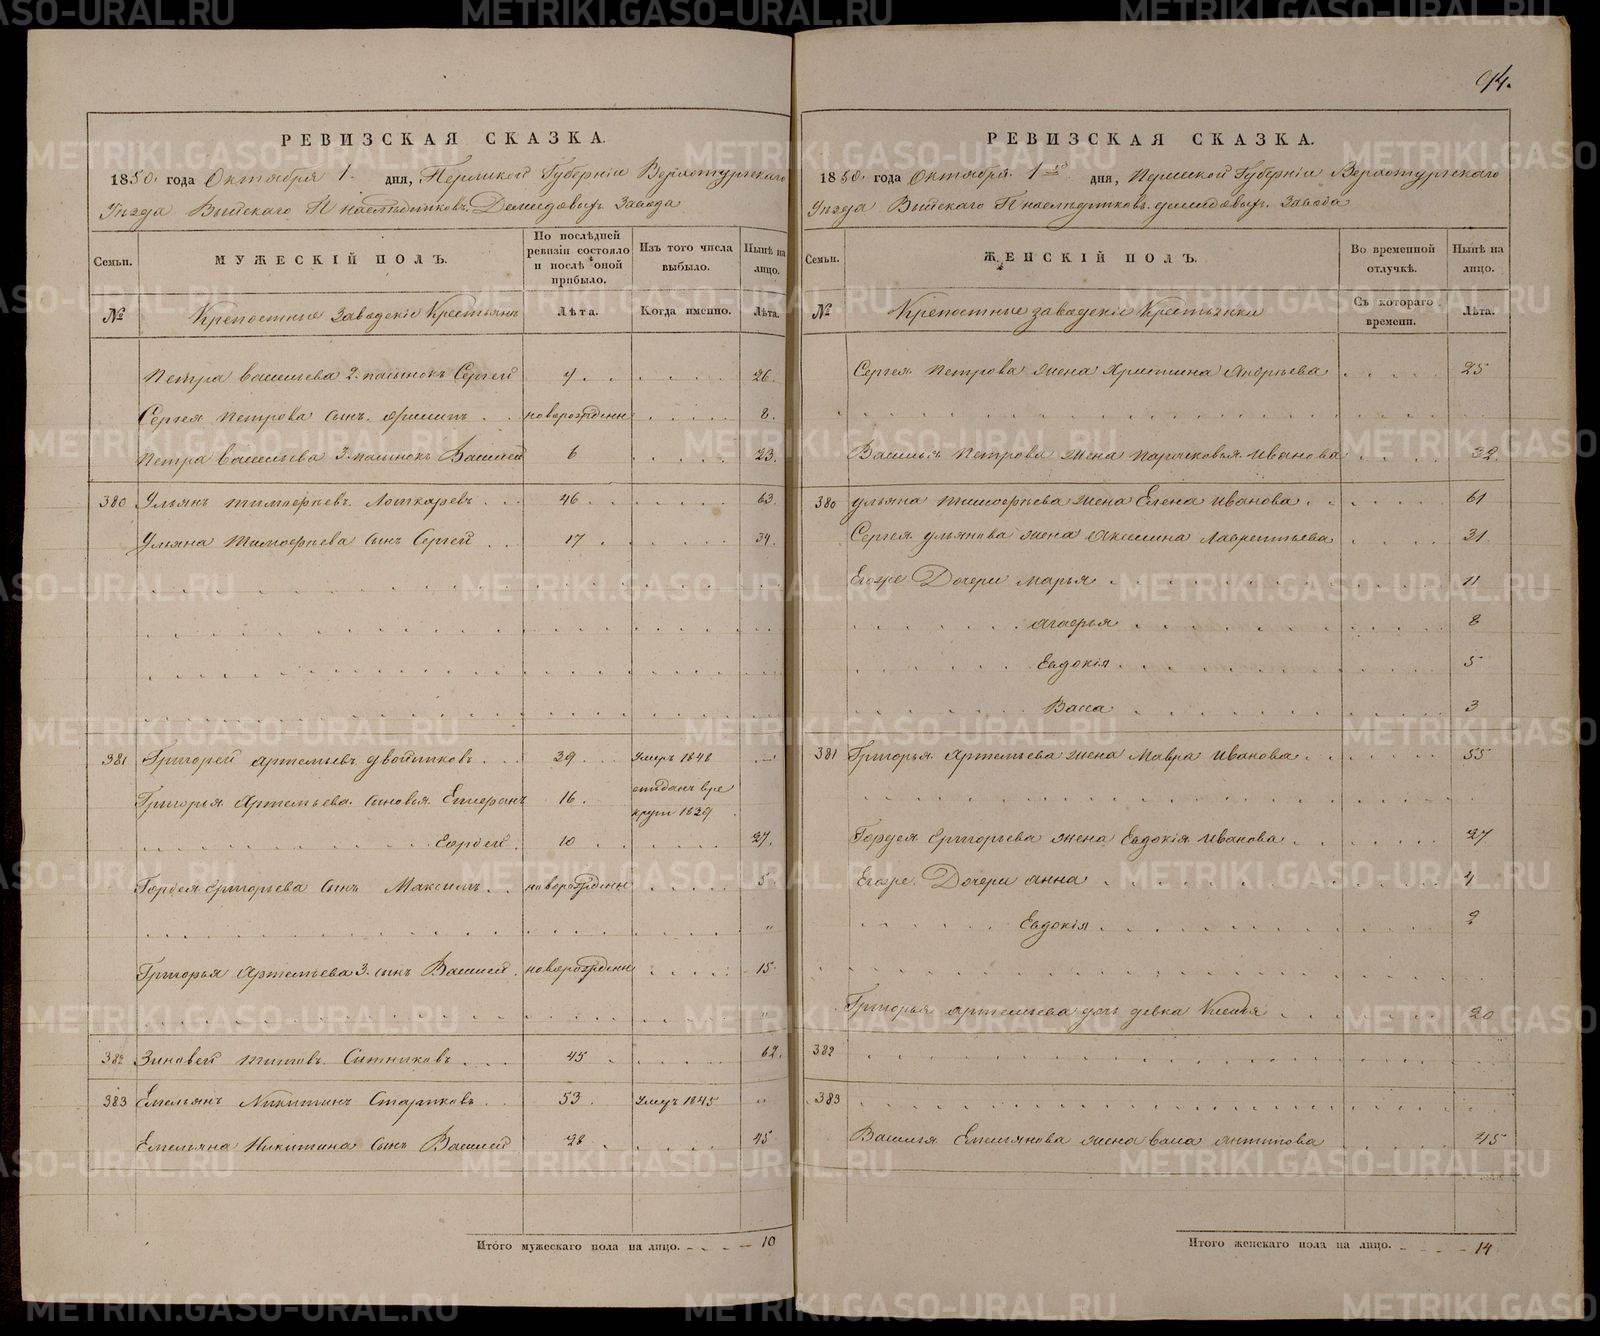 94.
РЕВИЗСКАЯ СКАЗКА.
1850. года Октября 1. дня, Пермской Губерніи Верхотурскаго
Уѣзда Выйскаго Гг наслѣдниковъ Демидовыхъ Завода
Семьи.
МУЖЕСКІЙ ПОЛЪ.
По послѣдней ревизіи состояло и послѣ оной прибыло.
Изъ того числа выбыло.
Нынѣ на лицо.
№
Крепостные Заводскіе Крестьяня
Лѣта.
Когда именно.
Лѣта.
Петра Васильева 2. пасынокъ Сергей 7 26.
Сергея Петрова сынъ новорожденн 8.
Петра Васильева 3. пасынокъ Василей 6 23.
380 Ульянъ Тимофѣевъ Лоткаревъ 46 63.
Ульяна Тимофѣева Сынъ Сергей 17 34.
381 Григорей Артемьевъ Двойниковъ 29 Умеръ 1848
Григорья Артемьева сыновья Епифанъ 16. отъданъ вре
крути 1839
Гордей. 10 27.
Гордея Григорьева Сынъ Максимъ новорожденн 5
Григорья Артемьева 3. сынъ Василей новорожденн 15.
382 Зиновей Титовъ Ситниковъ 45 62.
383 Емельянъ Никитинъ Стариковъ 53 Умеръ 1845
Емельяна Никитина Сынъ Василей 28 45
Итого мужескаго пола на лицо. 10
РЕВИЗСКАЯ СКАЗКА.
1850 года Октября 1го дня, Пермской Губерніи Верхотурскаго
Уѣзда Выйскаго Гг наслѣдниковъ Демидовыхъ Завода
Семьи.
ЖЕНСКІЙ ПОЛЪ.
Во временной отлучкѣ.
Нынѣ на лицо.
№
Крѣпостные заводскіе Крестьянки
Съ котораго времени.
Лѣта.
Сергея Петрова жена Христина Андреьева 25
Василья Петрова жена Парасковья Иванова 32
380 Ульяна Тимофѣева жена Елена Иванова 61
Сергея Ульянова жена Акилина Лаврентьева 31
Егоже Дочери Марья 11
Агафья 8
Евдокія 5
Васса 3
381 Григорья Артемьева жена Мавра Иванова 55
Гордея Григорьева жена Евдокія Иванова 27
Егоже Дочери Анна 4
Евдокія 2
Григорья Артемьева дочь девка 20
382
383
Василья Емельянова жена Васа Антипова 45
Итого женскаго пола на лицо. 14
METRIKI.GASO-URAL.RU